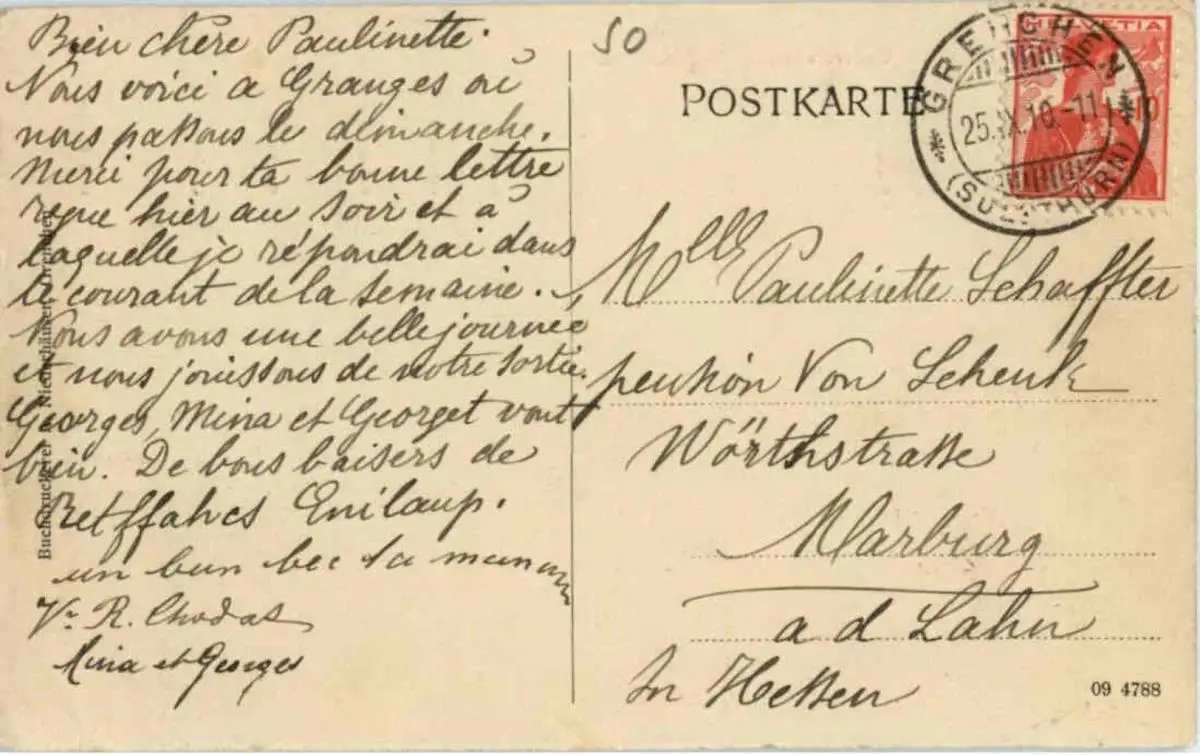 Bien chère Paulinette.
Nous voici a Granges où
nous passons le dimanche.
Merci pour ta bonne lettre
reçue hier au soir et à
laquelle je répondrai dans
le courant de la semaine.
Nous avons une belle journée
et nous jouissons de notre sortie.
Georges, Mina et Georget vont
bien. De bons baisers de
Retffahcs Enilaup.
un bon bec ta maman
Vve R. Chodat
Mina et Georges
Buchdruckerei
50
POSTKARTE
HELVETIA
GRENCHEN
25.IX.10.-11
(SOLOTHURN)
Mlle Paulinette Schaffter
pension Von Schenk
Wörthstrasse
Marburg
a d Lahn
In Hessen
09 4788